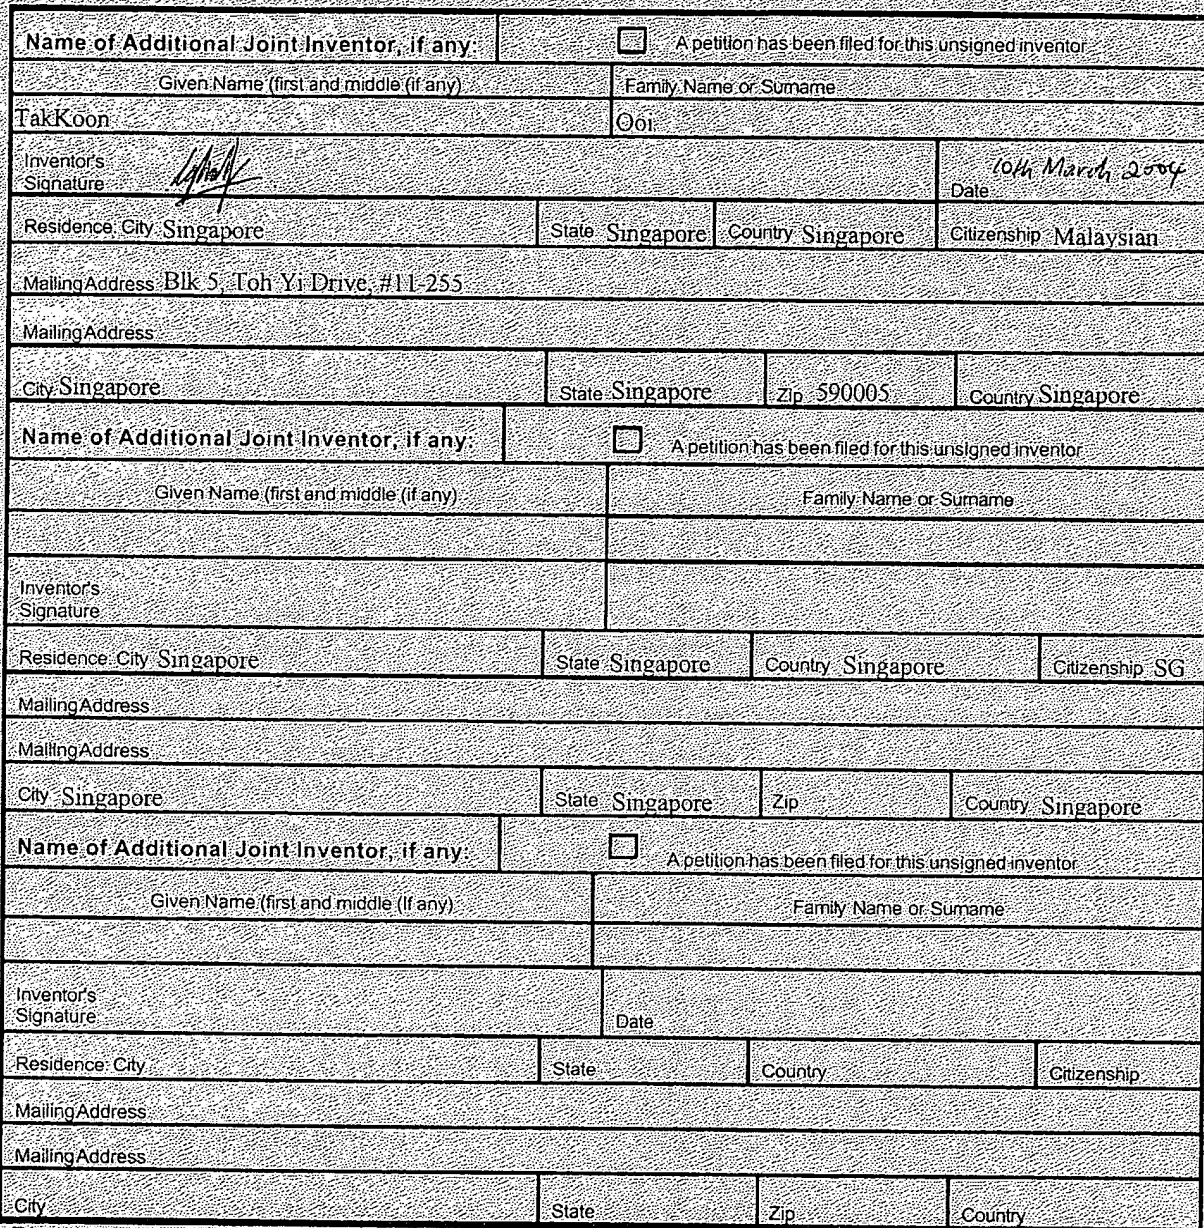 Name of Additional Joint Inventor, if any: A petition has been filed for this unsigned inventor
Given Name (first and middle (if any) Family Name or Surname
TakKoon Ooi
Inventor's
Signature Date 10th March 2004
Residence: City Singapore State Singapore Country Singapore Citizenship Malaysian
Mailing Address Blk 5, Toh Yi Drive, #11-255
Mailing Address
City Singapore State Singapore Zip 590005 Country Singapore
Name of Additional Joint Inventor, if any: A petition has been filed for this unsigned inventor
Given Name (first and middle (if any) Family Name or Surname
Inventor's
Signature
Residence: City Singapore State Singapore Country Singapore Citizenship SG
Mailing Address
Mailing Address
City Singapore State Singapore Zip Country Singapore
Name of Additional Joint Inventor, if any: A petition has been filed for this unsigned inventor
Given Name (first and middle (If any) Family Name or Surname
Inventor's
Signature Date
Residence: City State Country Citizenship
Mailing Address
Mailing Address
City State Zip Country